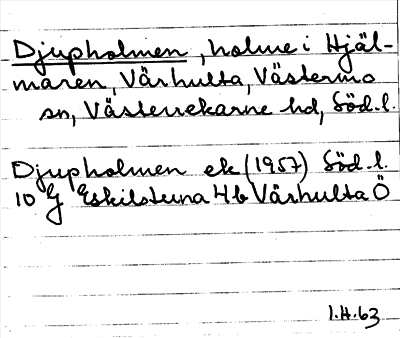 Djupholmen, holme i Hjäl-
maren, Vårhulta, Västermo
sn, Västerrekarne hd, Söd.l.
Djupholmen ek (1957) Söd.l.
10 G Eskilstuna 4b Vårhulta Ö
1.H.63